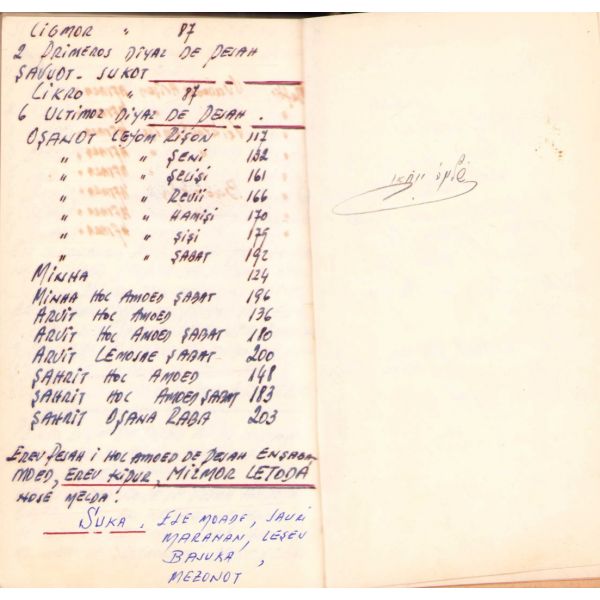 LIGMOR " 87
2 PRIMEROS DIYAZ DE PESAH
ŞAVUOT - SUKOT
LIKRO " 87
6 ULTIMOZ DIYAZ DE PESAH.
OŞANOT LEYOM RIŞON 117
" " ŞENİ 132
" " ŞELİŞİ 161
" " REVİİ 166
" " HAMİŞİ 170
" " ŞİŞİ 179
" " ŞABAT 192
MİNHA 124
MİNHA HOL AMOED ŞABAT 196
ARVİT HOL AMOED 136
ARVİT HOL AMOED ŞABAT 180
ARVİT LEMOSAE ŞABAT 200
ŞAHRİT HOL AMOED 148
ŞAHRİT HOL AMOED ŞABAT 183
ŞAHRİT OŞANA RABA 203
EREV PESAH İ HOL AMOED DE PESAH ENSABA
MOED, EREV KİPUR, MİZMOR LETODA
NOSE MELDA.
SUKA. ELE MOADE, SAVRİ
MARANAN, LEŞEV
BASUKA,
MEZONOT